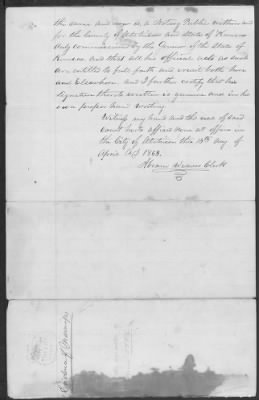 the same and was is a Notary Public within and
for the County of Atchison and State of Kansas
duly commissioned by the Governor of the State of
Kansas and that all his official acts as such
are entitled to full faith and credit both here
and Elsewhere and I further certify that his
signature thereto written is genuine and in his
own proper hand writing.
Witness my hand and the seal of said
Court hereto affixed done at office in
the City of Atchison this 13th day of
April A.D. 1863.
Clerk